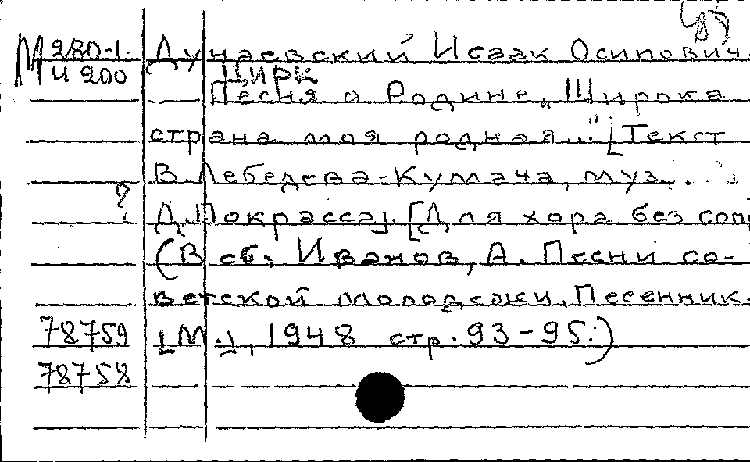 М 280-1. Дунаевский Исаак Осипович.
И 200 ЦИРК
Песня о Родине „Широка
страна моя родная..." [Текст
В. Лебедева-Кумача, муз.
? Д. Покрасса]. [Для хора без сопр
(В сб. Иванов, А. Песни со-
ветской молодежи. Песенник.
78759 [М.], 1948 стр. 93-95.)
78758